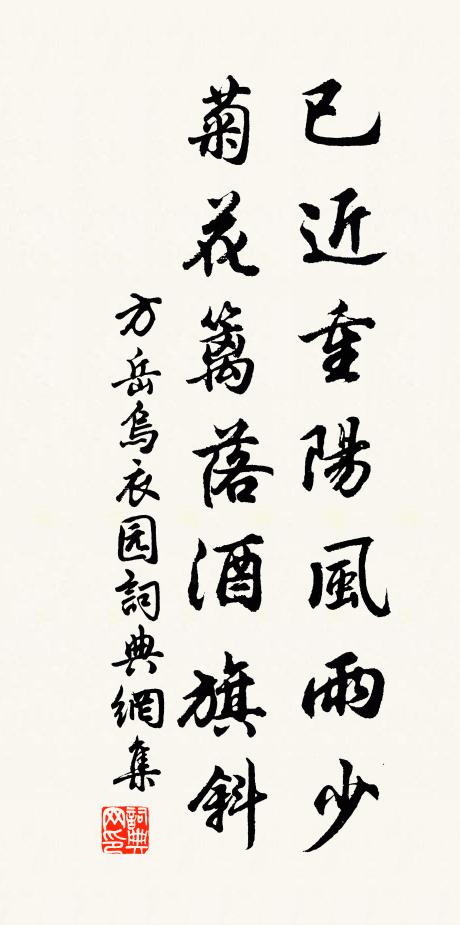 已近重陽風雨少
菊花籬落酒旗斜
方岳烏衣园詞典網集
詞典网印